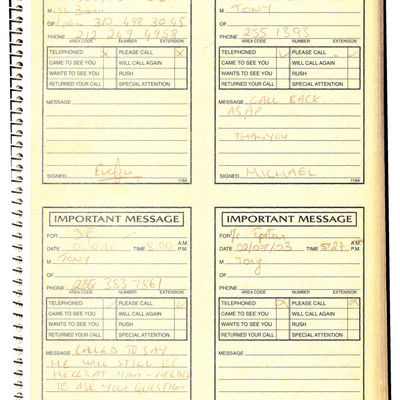 OF
PHONE 212 249 4958
AREA CODE NUMBER EXTENSION
TELEPHONED X PLEASE CALL X
CAME TO SEE YOU WILL CALL AGAIN
WANTS TO SEE YOU RUSH
RETURNED YOUR CALL SPECIAL ATTENTION
MESSAGE
SIGNED
1184
M TONY
OF
PHONE 255 1393
AREA CODE NUMBER EXTENSION
TELEPHONED ✓ PLEASE CALL ✓
CAME TO SEE YOU WILL CALL AGAIN
WANTS TO SEE YOU RUSH
RETURNED YOUR CALL SPECIAL ATTENTION
MESSAGE CALL BACK
ASAP
THANK YOU
SIGNED MICHAEL
1184
IMPORTANT MESSAGE
FOR JE
DATE TIME 8:00 A.M. P.M.
M TONY
OF
PHONE 255 383 7861
AREA CODE NUMBER EXTENSION
TELEPHONED PLEASE CALL ✓
CAME TO SEE YOU WILL CALL AGAIN
WANTS TO SEE YOU RUSH
RETURNED YOUR CALL SPECIAL ATTENTION
MESSAGE CALLED TO SAY
HE WILL STILL BE
HERE AT 11AM - NEEDED
TO ASK YOU QUESTION
IMPORTANT MESSAGE
FOR Mr Epstein
DATE 02/07/03 TIME 5:27 A.M. P.M.
M Tony
OF
PHONE
AREA CODE NUMBER EXTENSION
TELEPHONED X PLEASE CALL X
CAME TO SEE YOU WILL CALL AGAIN
WANTS TO SEE YOU RUSH
RETURNED YOUR CALL SPECIAL ATTENTION
MESSAGE